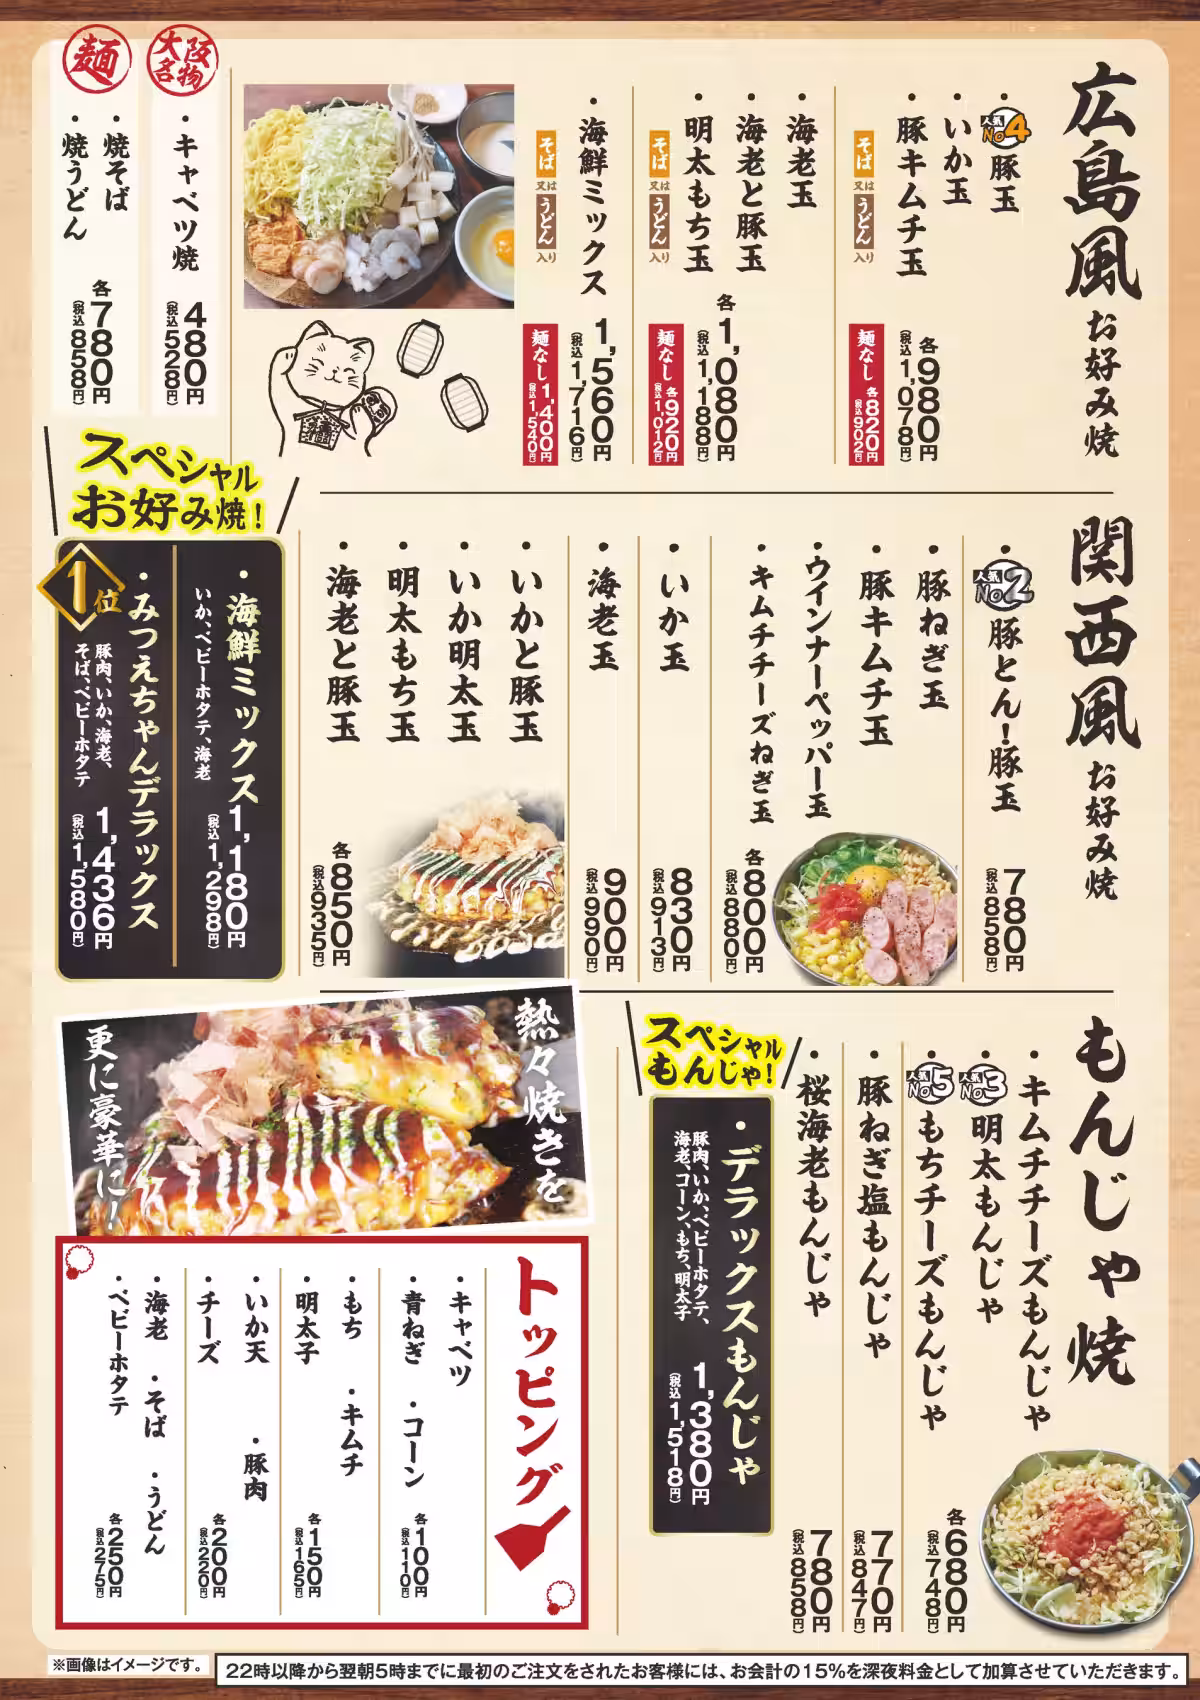 広島風お好み焼
人気No4
・豚玉
・いか玉
・豚キムチ玉
各980円
(税込1,078円)
そば又はうどん入り
麺なし各820円
(税込902円)
・海老玉
・海老と豚玉
・明太もち玉
各1,080円
(税込1,188円)
そば又はうどん入り
麺なし各920円
(税込1,012円)
・海鮮ミックス
1,560円
(税込1,716円)
そば又はうどん入り
麺なし1,400円
(税込1,540円)
大阪名物
・キャベツ焼
480円
(税込528円)
麺
・焼そば
・焼うどん
各780円
(税込858円)
関西風お好み焼
人気No2
・豚とん!豚玉
780円
(税込858円)
・豚ねぎ玉
・豚キムチ玉
・ウインナーペッパー玉
・キムチチーズねぎ玉
各800円
(税込880円)
・いか玉
830円
(税込913円)
・海老玉
900円
(税込990円)
・いかと豚玉
・いか明太玉
・明太もち玉
・海老と豚玉
各850円
(税込935円)
スペシャル
お好み焼!
・海鮮ミックス
いか、ベビーホタテ、海老
1,180円
(税込1,298円)
1位
・みつえちゃんデラックス
豚肉、いか、海老、
そば、ベビーホタテ
1,436円
(税込1,580円)
もんじゃ焼
・キムチチーズもんじゃ
人気No3
・明太もんじゃ
人気No5
・もちチーズもんじゃ
各680円
(税込748円)
・豚ねぎ塩もんじゃ
770円
(税込847円)
・桜海老もんじゃ
780円
(税込858円)
スペシャル
もんじゃ!
・デラックスもんじゃ
豚肉、いか、ベビーホタテ、
海老、コーン、もち、明太子
1,380円
(税込1,518円)
熱々焼きを
更に豪華に!
トッピング
・キャベツ
・青ねぎ ・コーン
各100円
(税込110円)
・もち ・キムチ
・明太子
各150円
(税込165円)
・いか天 ・豚肉
・チーズ
各200円
(税込220円)
・海老 ・そば ・うどん
・ベビーホタテ
各250円
(税込275円)
※画像はイメージです。
22時以降から翌朝5時までに最初のご注文をされたお客様には、お会計の15%を深夜料金として加算させていただきます。